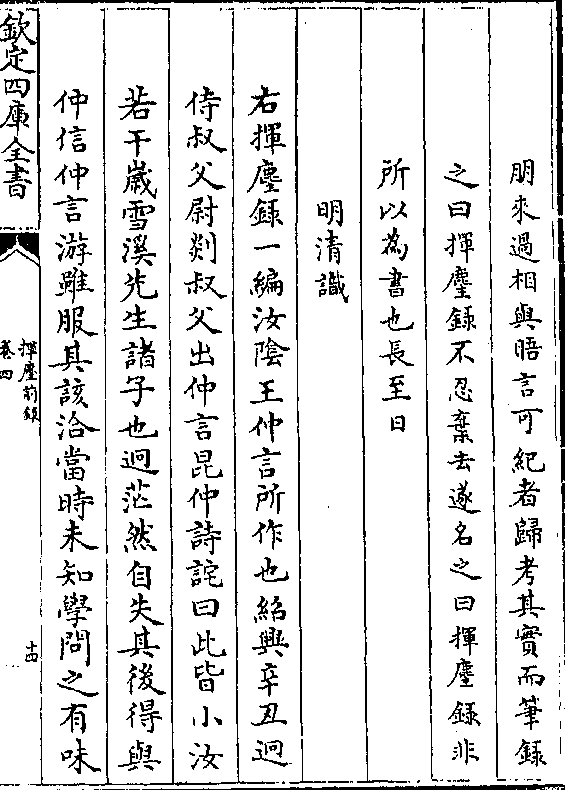 朋來過相與晤言可紀者歸考其實而筆錄
之曰揮麈錄不忍棄去遂名之曰揮麈錄非
所以為書也長至日
明清識
右揮麈錄一編汝陰王仲言所作也紹興辛丑迥
侍叔父尉剡叔父出仲言昆仲詩詫曰此皆小汝
若干歲雪溪先生諸子也迥茫然自失其後得與
仲信仲言游雖服其該洽當時未知學問之有味
欽定四庫全書
揮麈前錄
卷四
十四